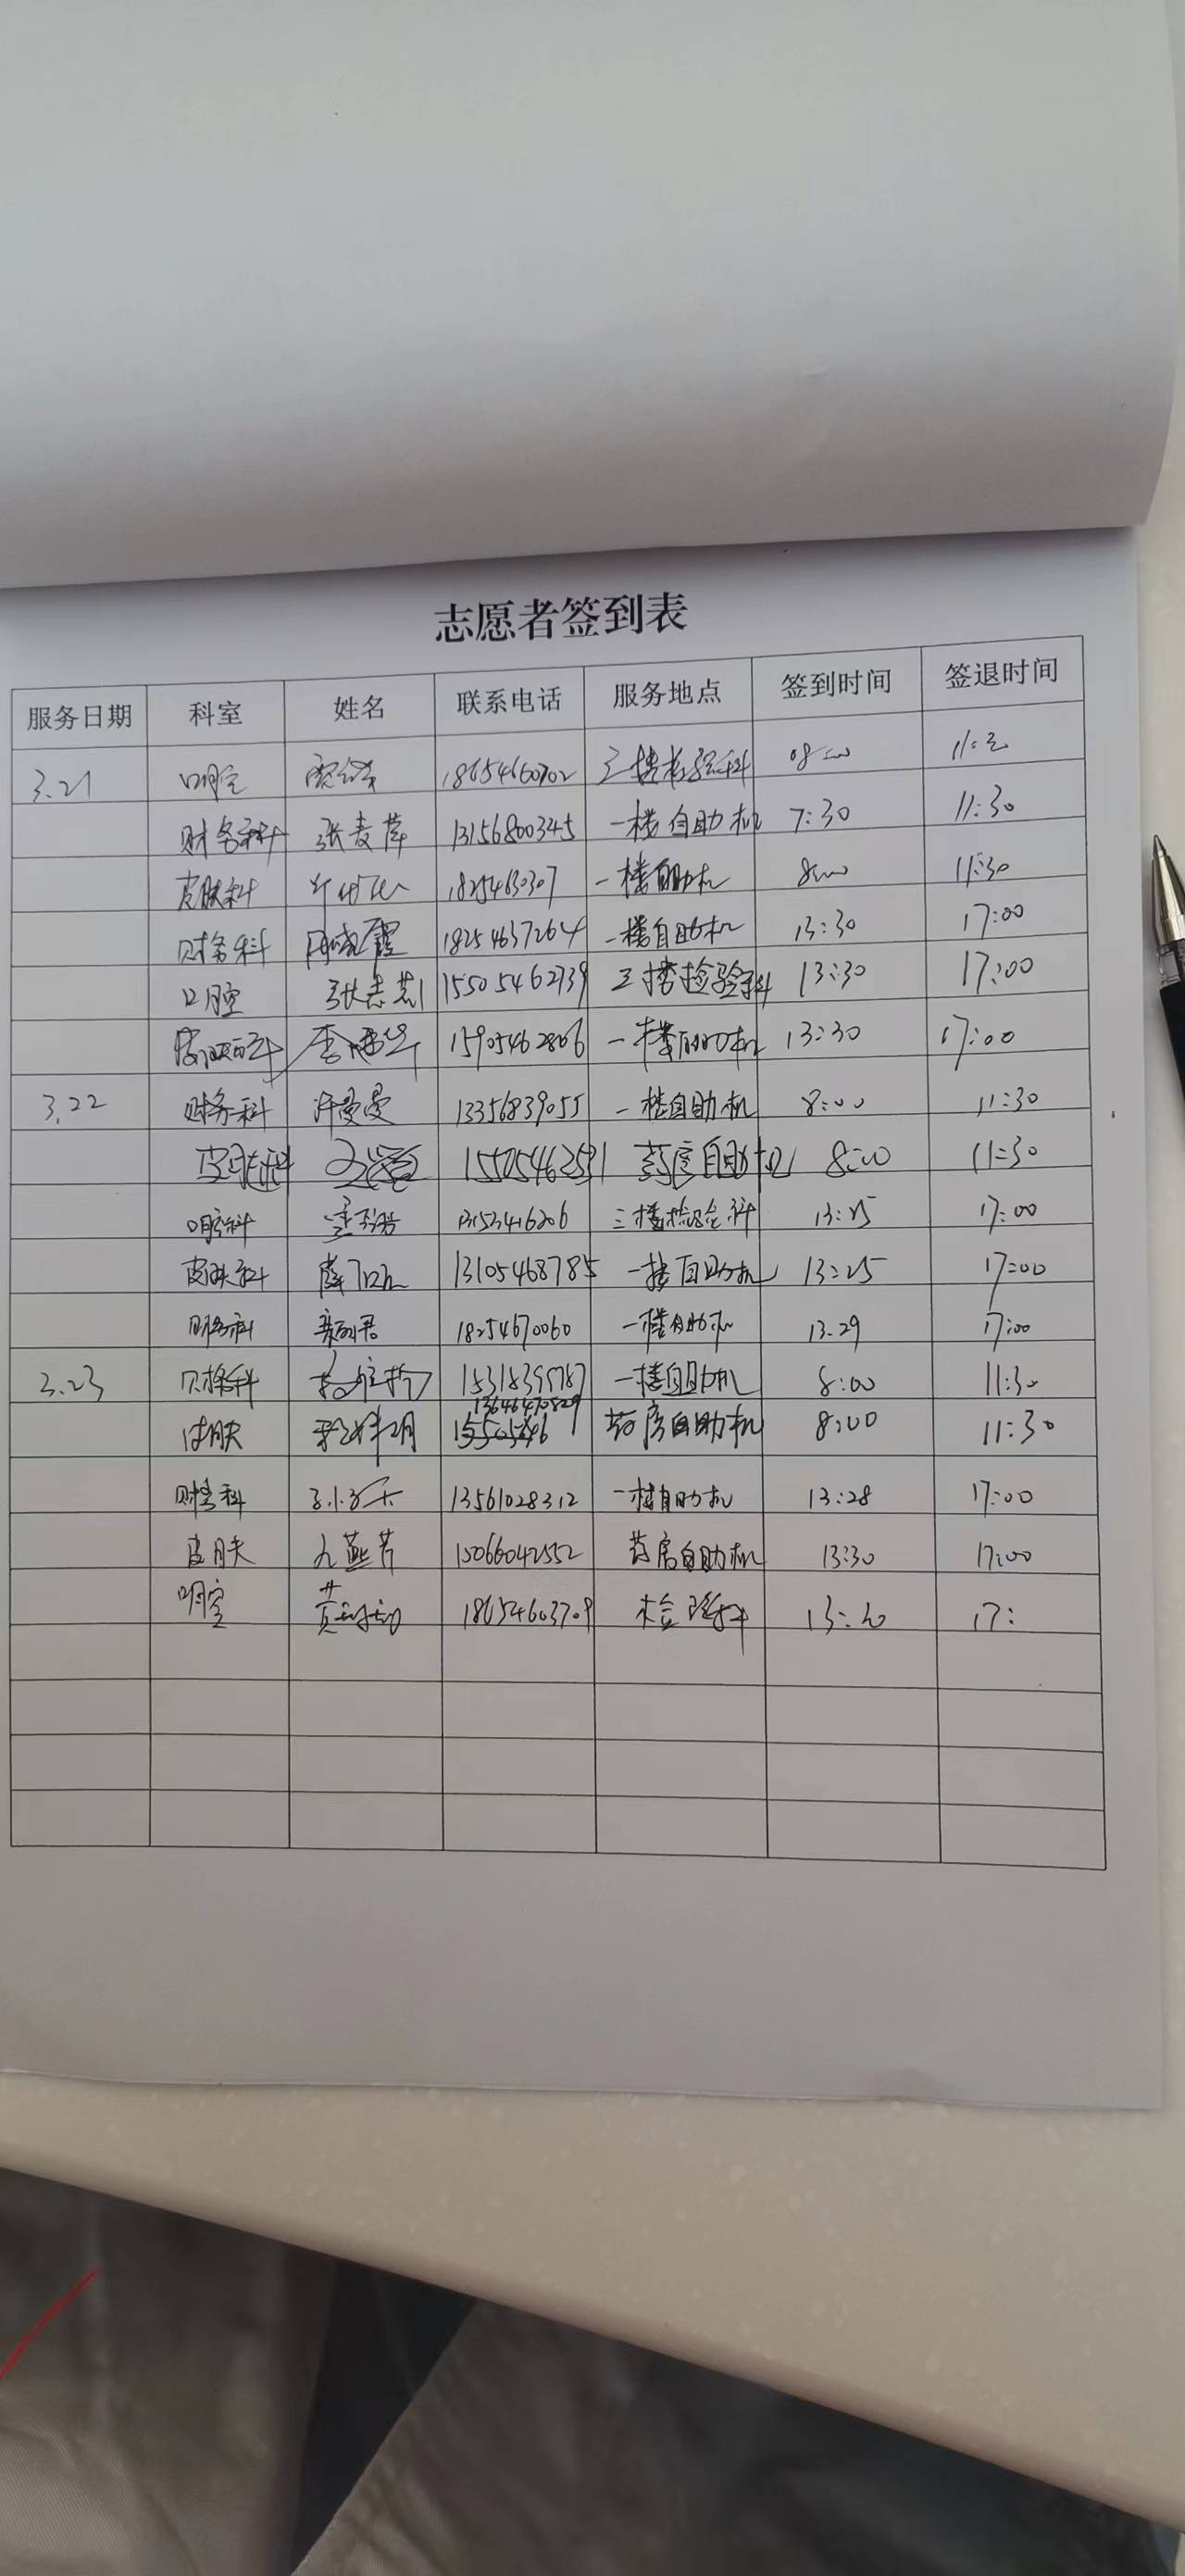 志愿者签到表
服务日期 科室 姓名 联系电话 服务地点 签到时间 签退时间
3.21 口腔 18654660702 三楼检验科 08:00
财务科 张麦萍 13156800345 一楼自助机 7:30 11:30
皮肤科 18254630307 一楼自助机 8:00 11:30
财务科 18254637264 一楼自助机 13:30 17:00
口腔 15505462739 三楼检验科 13:30 17:00
15905462806 一楼自助机 13:30 17:00
3.22 财务科 许曼曼 13356839055 一楼自助机 8:00 11:30
皮肤科 15505462591 药房自助机 8:00 11:30
口腔科 13153416206 三楼检验科 13:25 17:00
皮肤科 13105468785 一楼自助机 13:25 17:00
财务科 18254670060 一楼自助机 13.29 17:00
3.23 财务科 一楼自助机 8:00 11:30
皮肤 13646470829 药房自助机 8:00 11:30
财务科 13561028312 一楼自助机 13:28 17:00
皮肤 15066042552 药房自助机 13:30 17:00
口腔 18654603709 检验科 13:30 17: